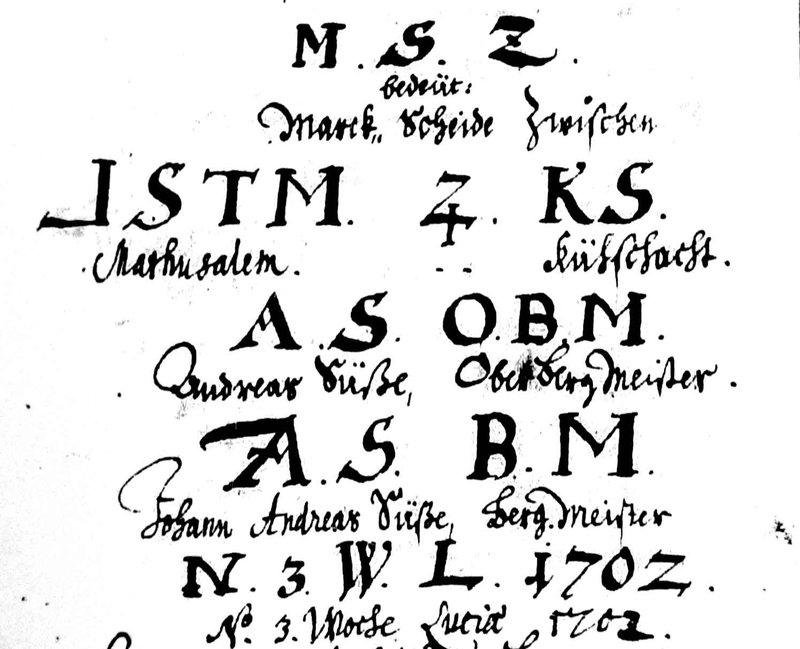 M. S. Z.
bedeüt:
Marck,, Scheide Zwischen
I S T M. Z. K S.
Mathusalem. Kühschacht.
A. S. O. B. M.
Andreas Süße, Ober Berg Meister.
A. S. B. M.
Johann Andreas Süße, Berg. Meister
N. 3. W. L. 1702.
No. 3. Woche Luciæ 1702.